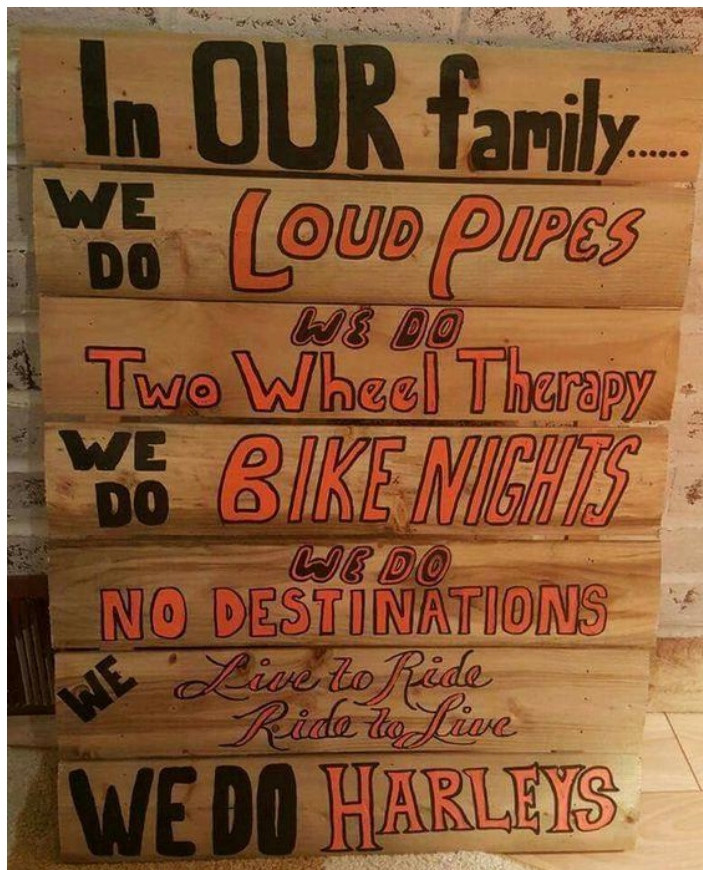 In OUR family......
WE DO LOUD PIPES
WE DO
Two Wheel Therapy
WE DO BIKE NIGHTS
WE DO
NO DESTINATIONS
WE Live to Ride
Ride to Live
WE DO HARLEYS